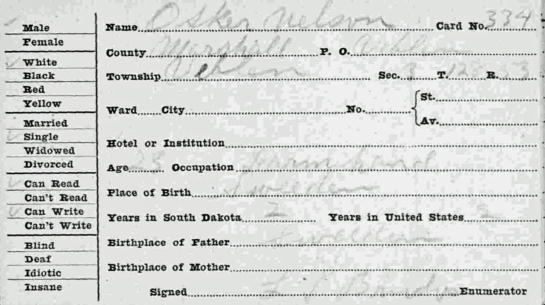 Male
Female
White
Black
Red
Yellow
Married
Single
Widowed
Divorced
Can Read
Can't Read
Can Write
Can't Write
Blind
Deaf
Idiotic
Insane
Name Osker Nelson Card No. 334
County Marshall P. O.
Township Sec. T. R. 53
Ward City No. St.
Av.
Hotel or Institution
Age 23 Occupation Farmhand
Place of Birth Sweeden
Years in South Dakota 2 Years in United States 2
Birthplace of Father Sweeden
Birthplace of Mother
Signed Enumerator